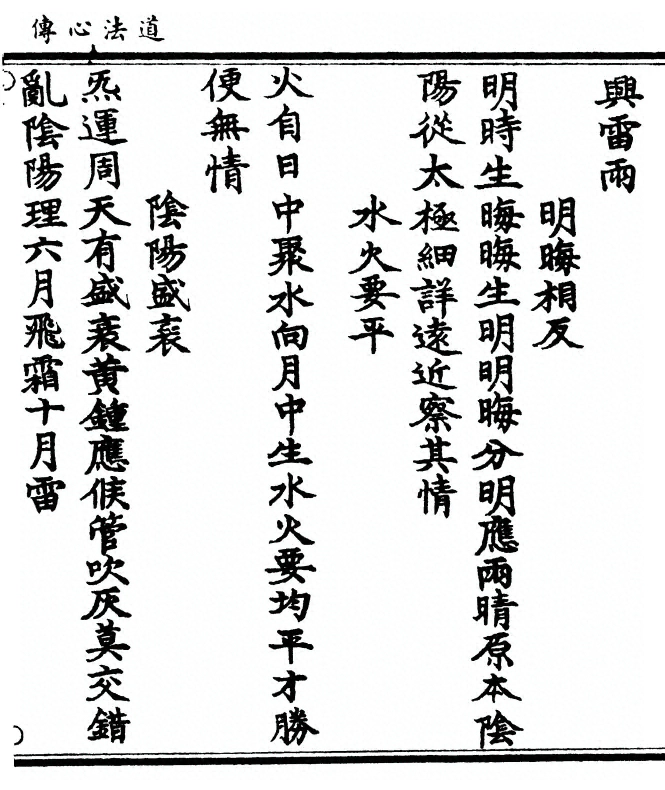 道法心傳
興雷雨
明晦相反
明時生晦晦生明明晦分明應雨晴原本陰
陽從太極細詳遠近察其情
水火要平
火自日中聚水向月中生水火要均平才勝
便無情
陰陽盛衰
炁運周天有盛衰黃鐘應候管吹灰莫交錯
亂陰陽理六月飛霜十月雷